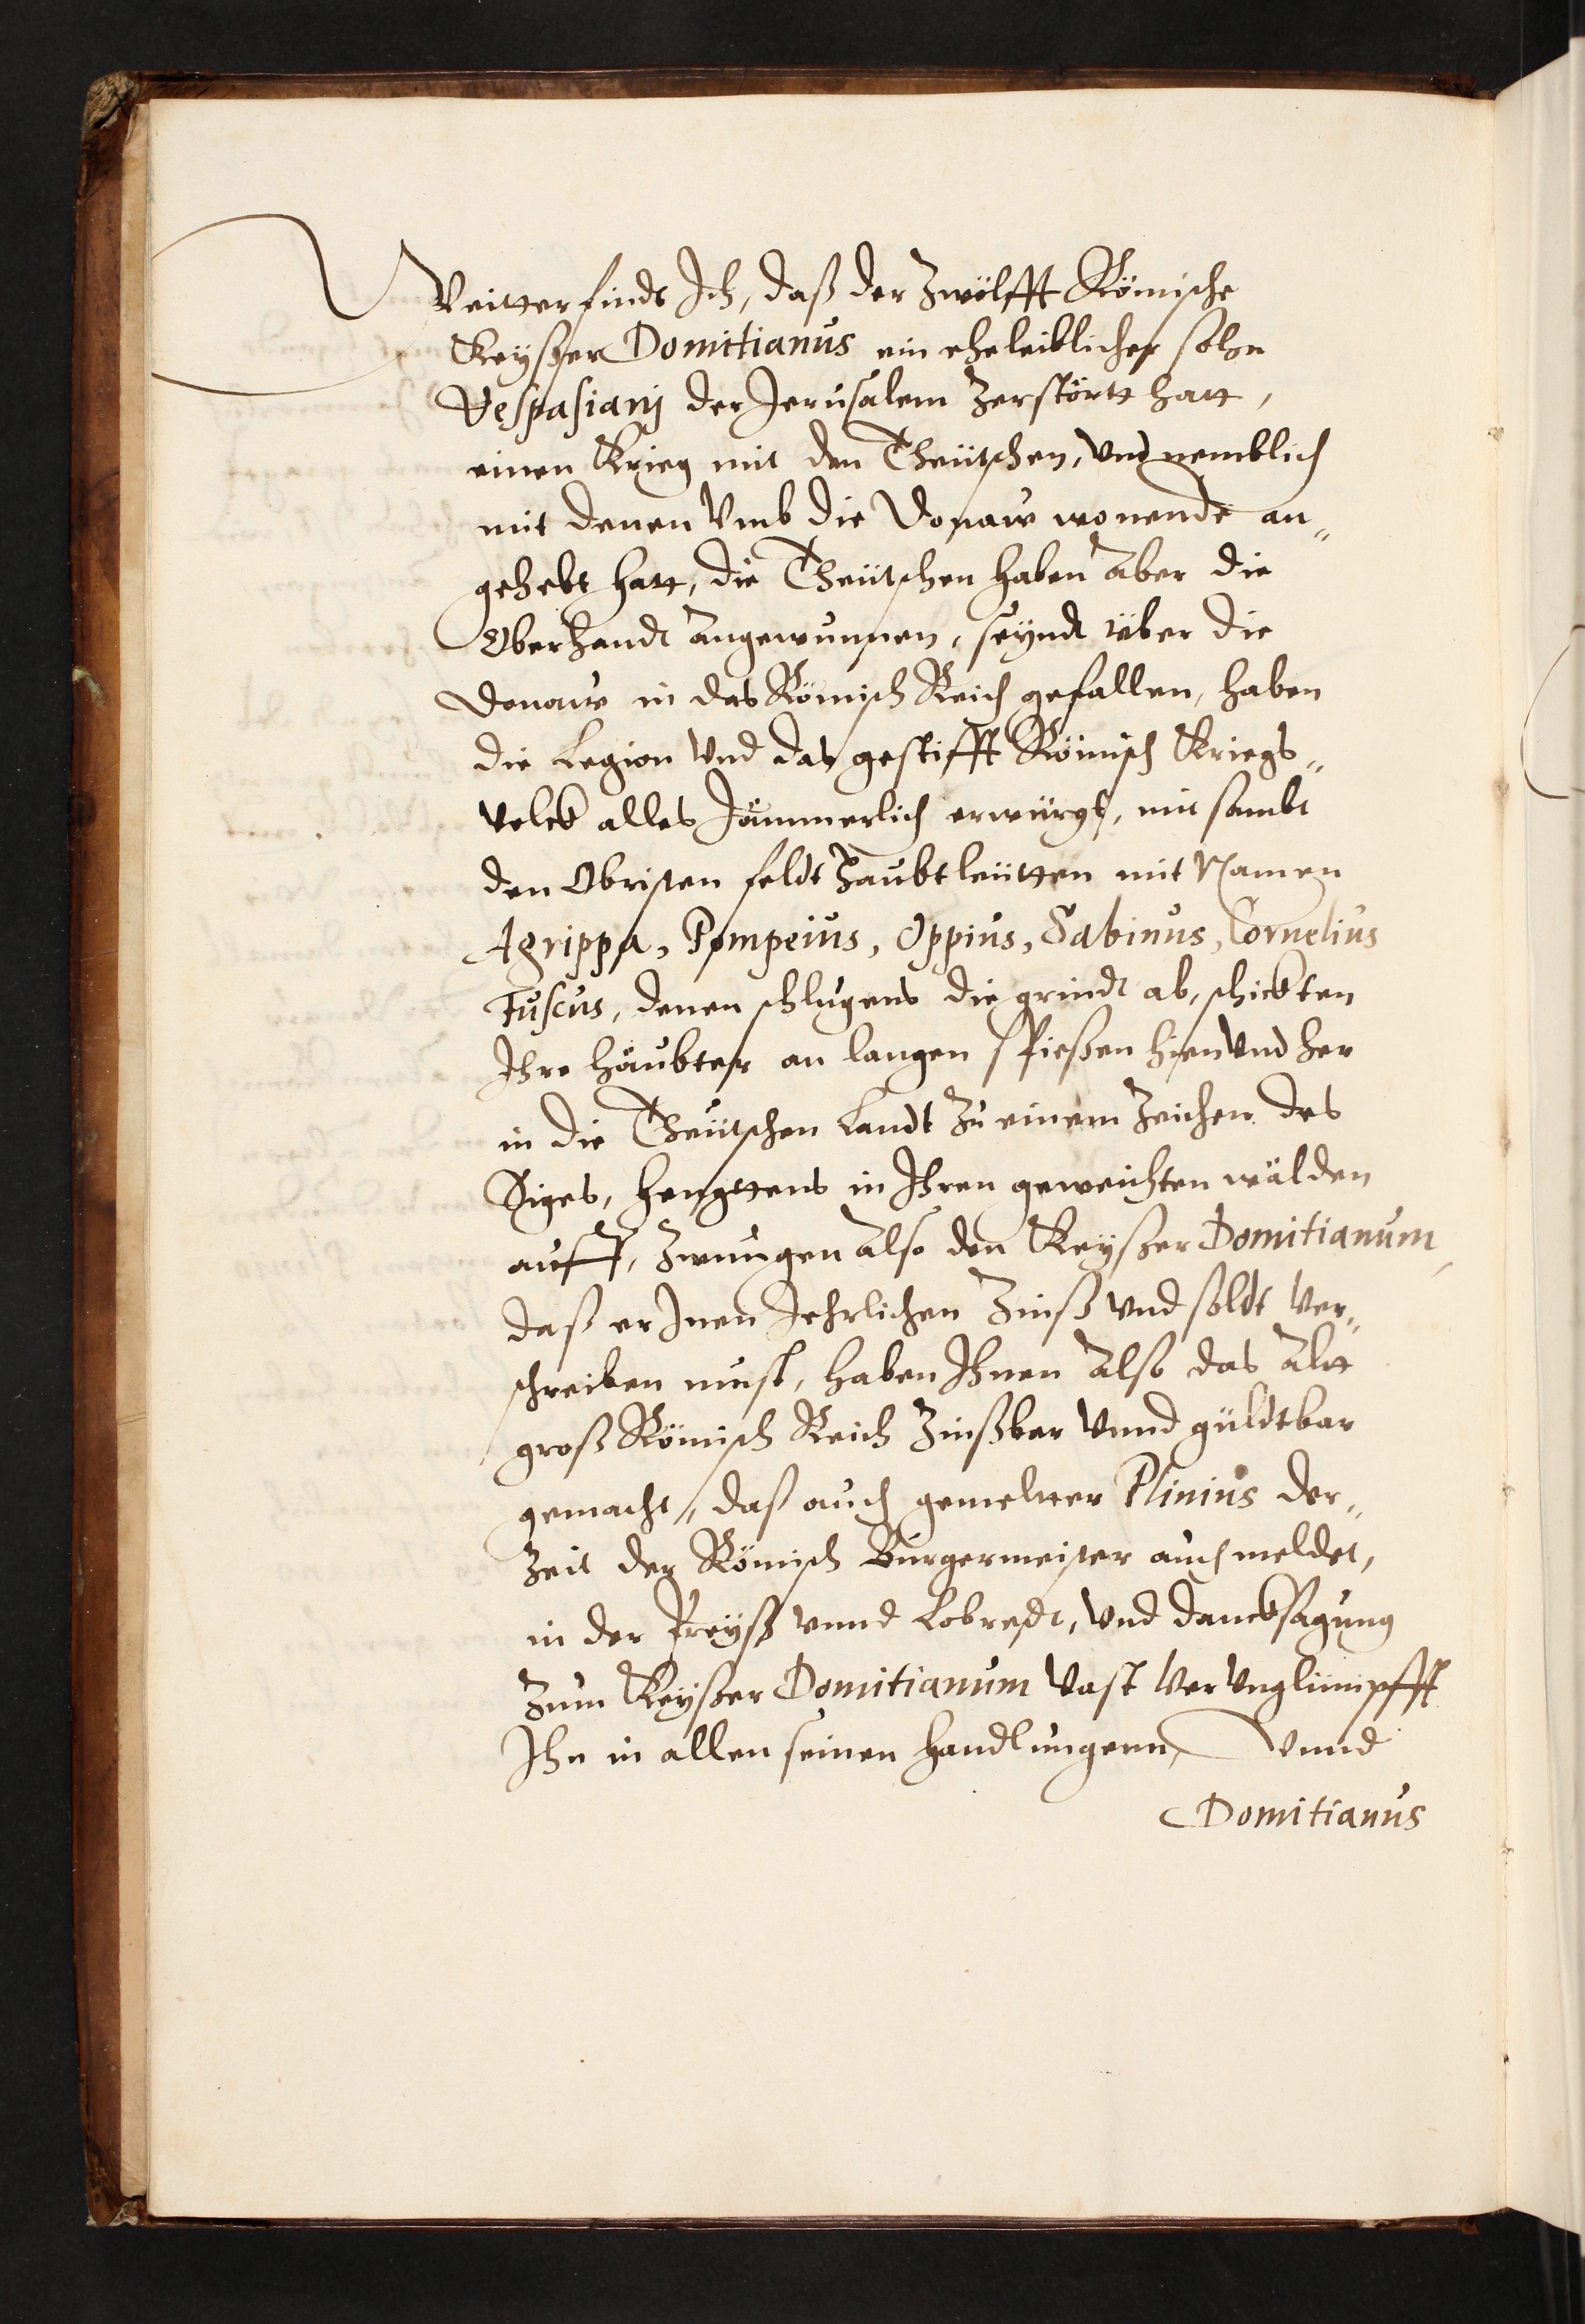 Weitter finde Ich, daß der Zwölfft Römische
Keyßer Domitianus ein eheleiblicher sohn
Vespasianj der Jerusalem Zerstörtt hatt,
einen Krieg mit den Theütschen, Vnd nemblich
mit denen Vmb die Donaw wonende an„
gehebt hatt, die Theütschen haben Aber die
Oberhandt Angewunnen, seyndt über die
Donaw in das Römisch Reich gefallen, haben
die Legion Vnd das gestifft Römisch Kriegs„
Volck alles Jämmerlich erwürgt, mit sambt
den Obristen feldt Haubtleütten mit Namen
Agrippa, Pompeius, Oppius, Sabinus, Cornelius
Fuscus, denen schlugens die grindt ab, schickten
Ihre Häubter an langen Spießen hien Vnd her
in die Theütschen Landt Zu einem Zeichen des
Siges, hengttens in Ihren geweichten wälden
auff, Zwungen Also den Keyßer Domitianum,
daß er Inen Jehrlichen Zinß vnd soldt Ver„
schreiben must, haben Ihnen Also das Altt
groß Römisch Reich Zinßbar Vnnd güldtbar
gemacht, daß auch gemeltter Plinius der„
Zeit der Römisch Burgermeister auch meldet,
in der Preyß vnnd Lobredt, Vnd dancksagung
Zum Keyßer Domitianum Vast Ver Vnglimpfft
Ihn in allen seinen Handlungenn, Vnnd
Domitianus